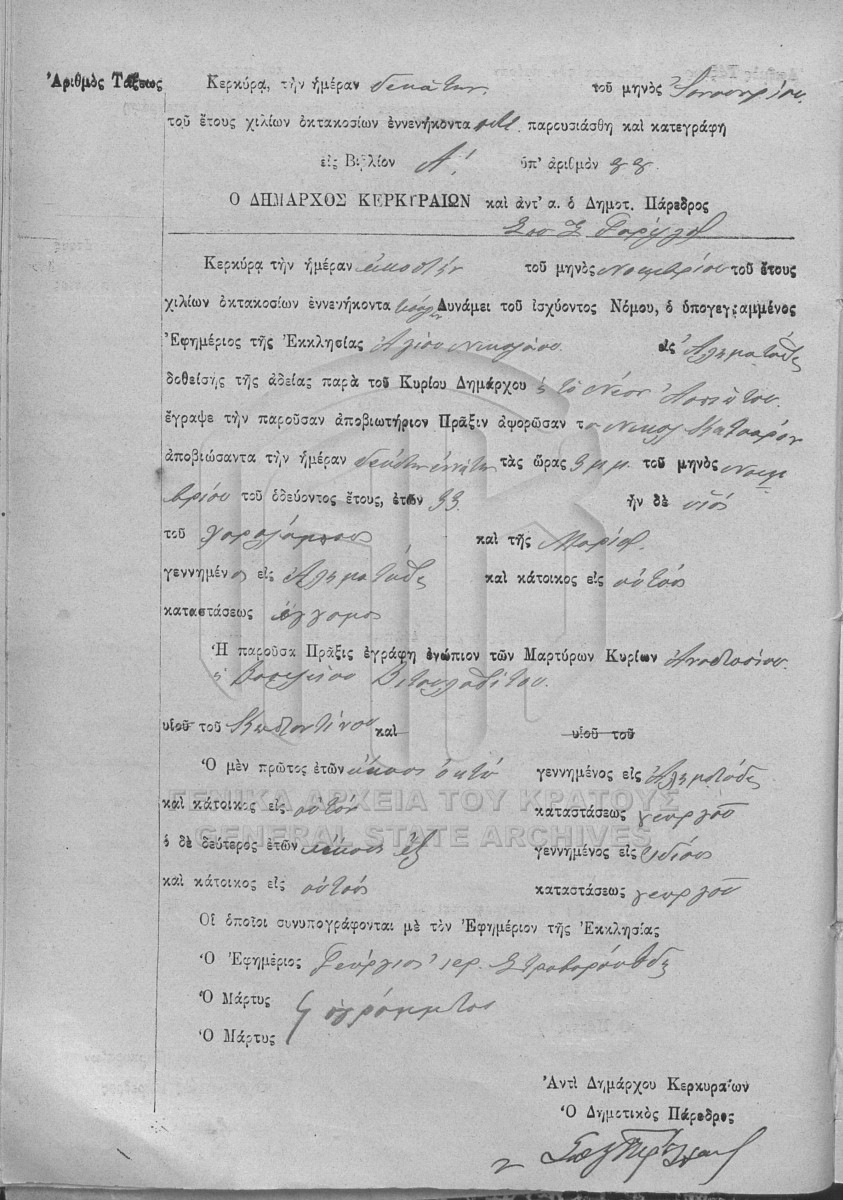 Ἀριθμὸς Τάξεως
Κερκύρα, τὴν ἡμέραν δεκάτην τοῦ μηνὸς Ἰανουαρίου
τοῦ ἔτους χιλίων ὀκτακοσίων ἐννενήκοντα παρουσιάσθη καὶ κατεγράφη
εἰς Βιβλίον Α! ὑπ' ἀριθμὸν
Ο ΔΗΜΑΡΧΟΣ ΚΕΡΚΥΡΑΙΩΝ καὶ ἀντ' α. ὁ Δημοτ. Πάρεδρος
Κερκύρα τὴν ἡμέραν εἰκοστὴν τοῦ μηνὸς Νοεμβρίου τοῦ ἔτους
χιλίων ὀκτακοσίων ἐννενήκοντα Δυνάμει τοῦ ἰσχύοντος Νόμου, ὁ ὑπογεγραμμένος
Ἐφημέριος τῆς Ἐκκλησίας Ἁγίου Νικολάου εἰς
δοθείσης τῆς ἀδείας παρὰ τοῦ Κυρίου Δημάρχου
ἔγραψε τὴν παροῦσαν ἀποβιωτήριον Πρᾶξιν ἀφορῶσαν τὸ
ἀποβιώσαντα τὴν ἡμέραν δεκάτην ἐννάτην τὰς ὥρας 3 μ.μ. τοῦ μηνὸς Νοεμ
βρίου τοῦ ὁδεύοντος ἔτους, ἐτῶν 33 ἦν δὲ υἱὸς
τοῦ Χαραλάμπους καὶ τῆς Μαρίας
γεννημένος εἰς καὶ κάτοικος εἰς
καταστάσεως ἔγγαμος
Ἡ παροῦσα Πρᾶξις ἐγράφη ἐνώπιον τῶν Μαρτύρων Κυρίων Ἀναστασίου
Βασιλείου
υἱοῦ τοῦ Κωσταντίνου καὶ υἱοῦ τοῦ
Ὁ μὲν πρῶτος ἐτῶν εἴκοσι ὀκτὼ γεννημένος εἰς
καὶ κάτοικος εἰς καταστάσεως γεωργοῦ
ὁ δὲ δεύτερος ἐτῶν εἴκοσι ἓξ γεννημένος εἰς
καὶ κάτοικος εἰς καταστάσεως γεωργοῦ
Οἱ ὁποῖοι συνυπογράφονται μὲ τὸν Ἐφημέριον τῆς Ἐκκλησίας
Ὁ Ἐφημέριος Γεώργιος ἱερ.
Ὁ Μάρτυς
ἀγράμματοι
Ὁ Μάρτυς
Ἀντὶ Δημάρχου Κερκυραίων
Ὁ Δημοτικὸς Πάρεδρος
ΓΕΝΙΚΑ ΑΡΧΕΙΑ ΤΟΥ ΚΡΑΤΟΥΣ
GENERAL STATE ARCHIVES